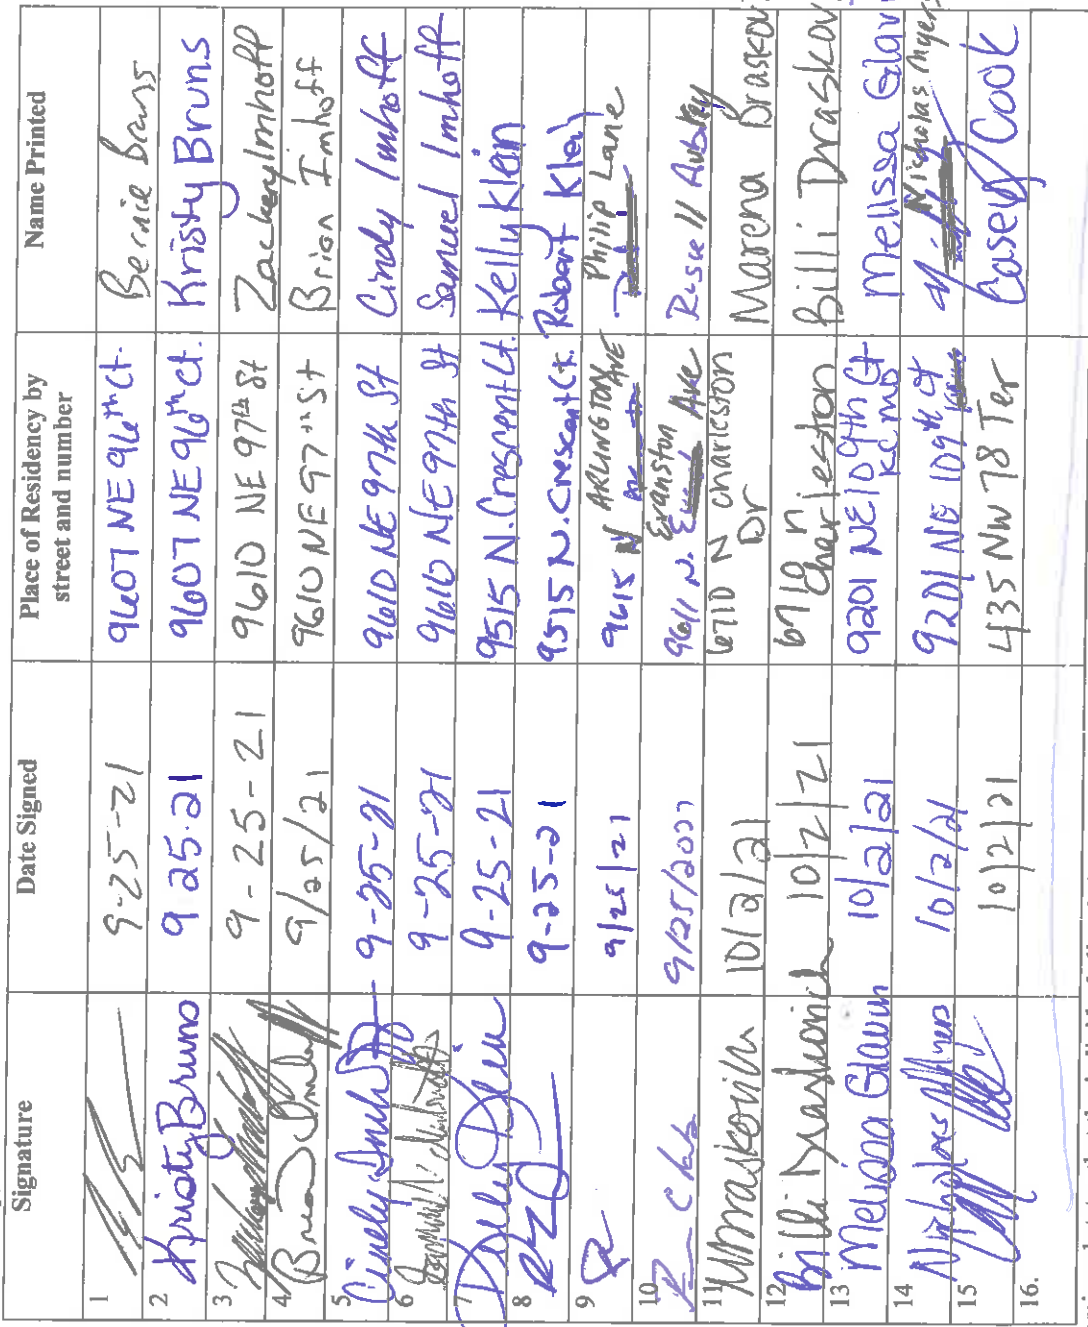 Signature Date Signed Place of Residency by street and number Name Printed
1 9-25-21 9607 NE 96th Ct. Bernie Bruns
2 Kristy Bruns 9 25.21 9607 NE 96th Ct. Kristy Bruns
3 9-25-21 9610 NE 97th St Zackery Imhoff
4 Brian Imhoff 9/25/21 9610 NE 97th St Brian Imhoff
5 Cindy Imhoff 9-25-21 9610 NE 97th St Cindy Imhoff
6 9-25-21 9610 NE 97th St Samuel Imhoff
7 9-25-21 9515 N. Cresent Ct. Kelly Klein
8 9-25-21 9515 N. Crescent Ct. Robert Klein
9 9/25/21 9615 N ARLINGTON AVE Phillip Lane
10 9/25/2021 9611 N. Evanston Ave Russell Aubrey
11 MDraskovich 10/2/21 6710 N Charleston Dr Marena Draskov
12 Billi Draskovich 10/2/21 6710 n Charleston Billi Draskov
13 Melissa Glavin 10/2/21 9201 NE 109th Ct KCMO Mellssa Glav
14 Nicholas Myers 10/2/21 9201 NE 109th Ct Nicholas Myers
15 10/2/21 435 NW 78 Ter Casey Cook
16.